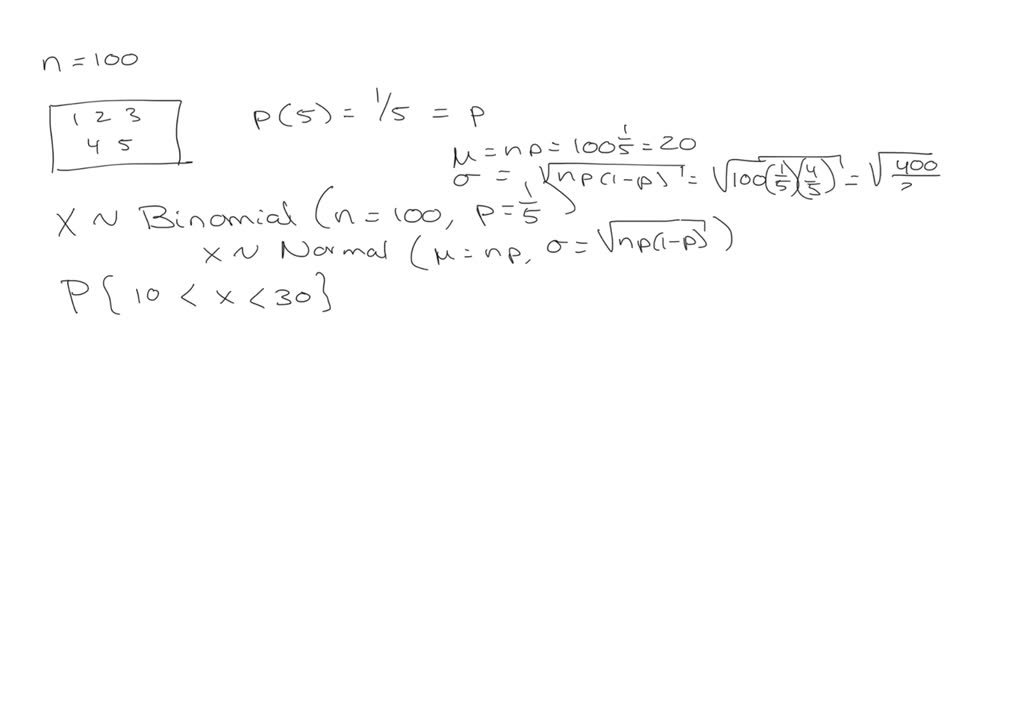 n = 100
1 2 3
4 5
P(5) = 1/5 = p
μ = np = 100 1/5 = 20
σ = √np(1-p) = √100(1/5)(4/5) = √400/2
X ~ Binomial (n = 100, p = 1/5)
X ~ Normal (μ = np, σ = √np(1-p))
P{10 < x < 30}